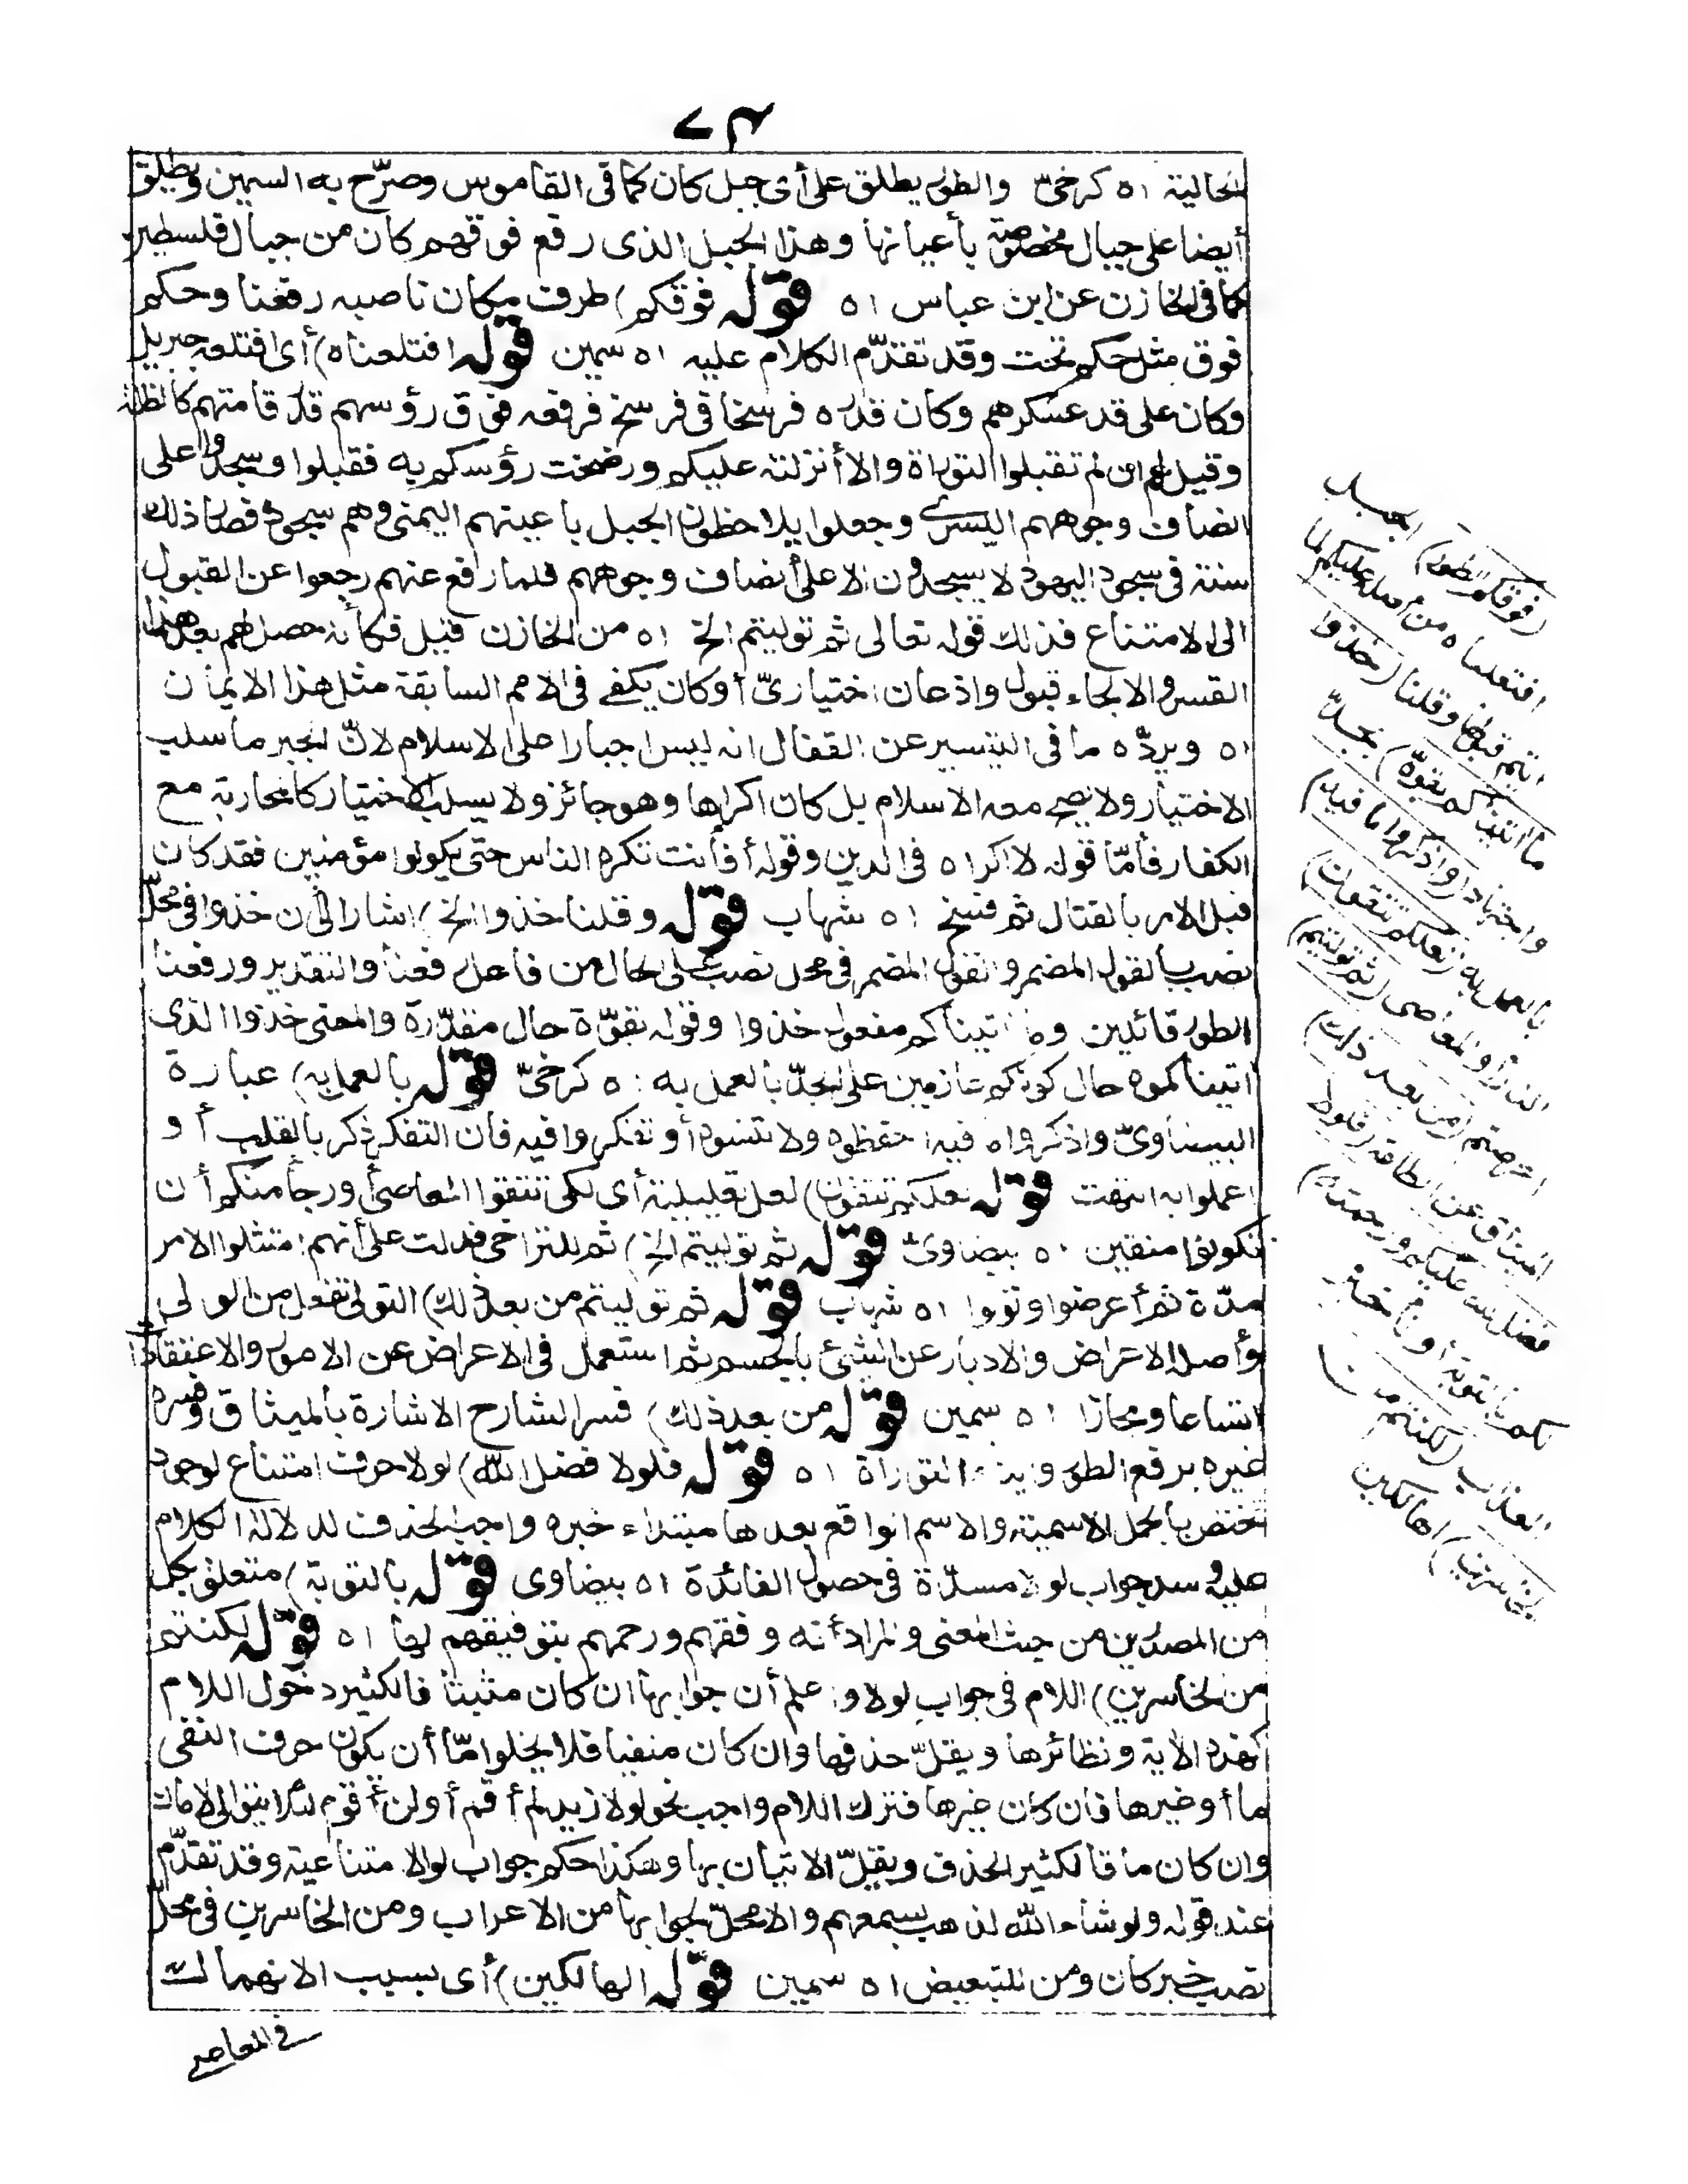 ٧٣
الحالية اه كرخىّ والطور يطلق على أى جبل كان كما فى القاموس وصرّح به السمين ويطلق
أيضا على جبال مخصوصة بأعيانها وهذا الجبل الذى رفع فوقهم كان من جبال فلسطين
كما فى الخازن عن ابن عباس اه قوله فوقكم) ظرف مكان ناصبه رفعنا وحكم
فوق مثل حكم تحت وقد تقدّم الكلام عليه اه سمين قوله اقتلعناه) أى اقتلعه جبريل
وكان على قدر عسكرهم وكان قدره فرسخا فى فرسخ فرفعه فوق رؤسهم قدر قامتهم كالظلة
وقيل لهم ان لم تقبلوا التوراة والا أنزلته عليكم ورضخت رؤسكم به فقبلوا وسجدوا على
انصاف وجوههم اليسرى وجعلوا يلاحظون الجبل بأعينهم اليمنى وهم سجود فصار ذلك
سنة فى سجود اليهود لا يسجدون الا على أنصاف وجوههم فلما رفع عنهم رجعوا عن القبول
الى الامتناع فذلك قوله تعالى ثم توليتم الخ اه من الخازن قيل فكأنه حصل لهم بعد هذا
القسر والالجاء قبول واذعان اختيارىّ أو كان يكفى فى الامم السابقة مثل هذا الايمان
اه ويردّه ما فى التيسير عن القفال انه ليس اجبارا على الاسلام لانّ الجبر ما سلب
الاختيار ولا يصح معه الاسلام بل كان اكراها وهو جائز ولا يسلب الاختيار كالمحاربة مع
الكفار فأمّا قوله لا اكراه فى الدين وقوله أفأنت تكره الناس حتى يكونوا مؤمنين فقد كان
قبل الامر بالقتال ثم نسخ اه شهاب قوله وقلنا خذوا الخ) اشار الى أن خذوا فى محلّ
نصب بالقول المضمر والقول المضمر فى محل نصب على الحال من فاعل رفعنا والتقدير ورفعنا
الطور قائلين وما آتيناكم مفعول خذوا وقوله بقوّة حال مقدّرة والمعنى خذوا الذى
آتيناكموه حال كونكم عازمين على الجدّ بالعمل به اه كرخىّ قوله بالعمل به) عبارة
البيضاوىّ واذكروا ما فيه احفظوه ولا تنسوه أو تفكروا فيه فان التفكر ذكر بالقلب أو
اعملوا به انتهت قوله لعلكم تتقون) لعل تعليلية أى لكى تتقوا المعاصى أو رجاء منكم أن
تكونوا متقين اه بيضاوىّ قوله ثم توليتم الخ) ثم للتراخى فدلت على أنهم امتثلوا الامر
مدّة ثم أعرضوا وتولوا اه شهاب قوله ثم توليتم من بعد ذلك) التولى تفعل من الولى
وأصله الاعراض والادبار عن الشئ بالجسم ثم استعمل فى الاعراض عن الامور والاعتقادات
اتساعا ومجازا اه سمين قوله من بعد ذلك) فسر الشارح الاشارة بالميثاق وفسره
غيره برفع الطور وايتاء التوراة اه قوله فلولا فضل الله) لولا حرف امتناع لوجود
تختص بالجمل الاسمية والاسم الواقع بعدها مبتداء خبره واجب الحذف لدلالة الكلام
عليه وسد جواب لولا مسدّه فى حصول الفائدة اه بيضاوى قوله بالتوبة) متعلق بكل
من المصدرين من حيث المعنى والمراد أنه وفقهم ورحمهم بتوفيقهم لها اه قوله لكنتم
من الخاسرين) اللام فى جواب لولا واعلم أن جوابها ان كان مثبتا فالكثير دخول اللام
كهذه الآية ونظائرها ويقلّ حذفها وان كان منفيا فلا يخلو امّا أن يكون حرف النفى
ما أو غيرها فان كان غيرها فترك اللام واجب نحو لولا زيد لم أقم أو لن أقوم لئلا يتوالى لامان
وان كان ما فالكثير الحذف ويقلّ الاتيان بها وهكذا حكم جواب لو الامتناعية وقد تقدّم
عند قوله ولو شاء الله لذهب بسمعهم ولا محلّ لجوابها من الاعراب ومن الخاسرين فى محلّ
نصب خبر كان ومن للتبعيض اه سمين قوله الهالكين) أى بسبب الانهماك
فى المعاصى
(فوقكم الطور) الجبل
اقتلعناه من أصله عليكم لما
أبيتم قبولها وقلنا (خذوا
ما آتيناكم بقوّة) بجدّ
واجتهاد (واذكروا ما فيه)
بالعمل به (لعلكم تتقون)
النار أو المعاصى (ثم توليتم)
أعرضتم (من بعد ذلك)
الميثاق عن الطاعة (فلولا
فضل الله عليكم ورحمته)
لكم بالتوبة أو تأخير
العذاب (لكنتم من
الخاسرين) الهالكين